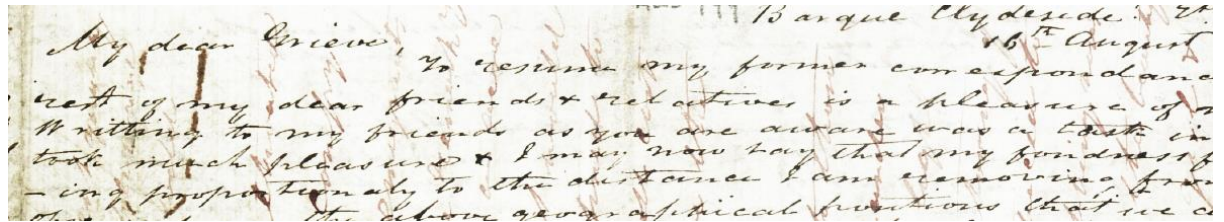 Barque Clydeside.
16th August
My dear Grieve,
To resume my former correspondanc
rest of my dear friends & relatives is a pleasure of
Writting to my friends as you are aware was a task in
took much pleasure & I may now say that my fondness f
-ing proportionaly to the distance I am removing from
the above geographical positions that we c